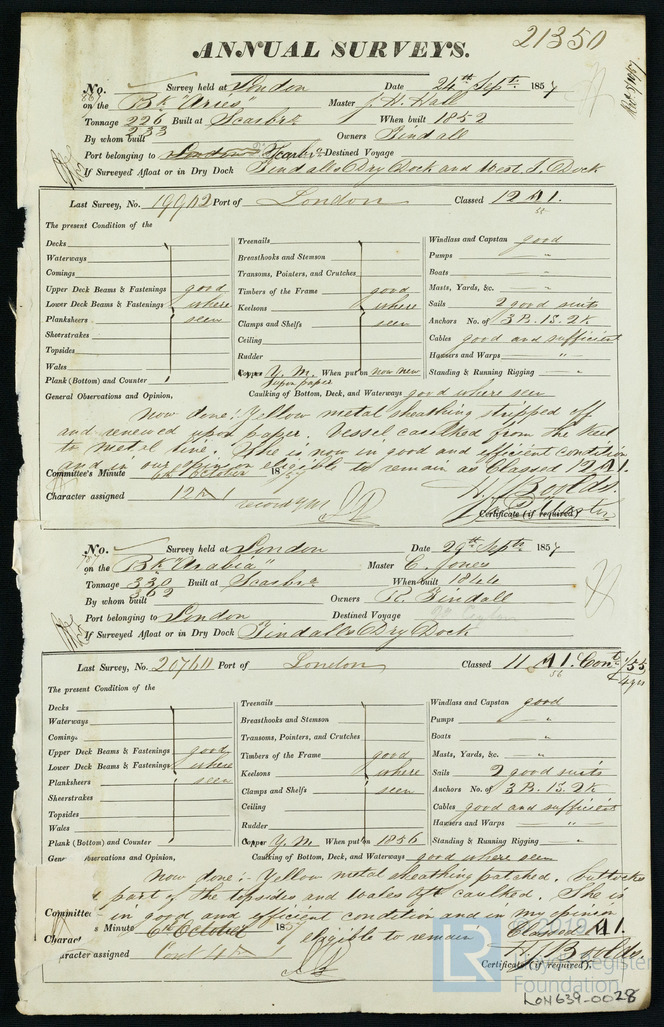 21350
ANNUAL SURVEYS.
No. Survey held at London Date 24th Septr. 1857
on the Bk "Aries" Master J. H. Hall
Tonnage 226 Built at Scarbro When built 1852
233
By whom built Owners Tindall
Port belonging to London Destined Voyage
If Surveyed Afloat or in Dry Dock Tindalls Dry Dock and West I. Dock
Last Survey, No. 19942 Port of London Classed 12 A1.
The present Condition of the
Decks
Waterways
Comings
Upper Deck Beams & Fastenings good
Lower Deck Beams & Fastenings where
Planksheers seen
Sheerstrakes
Topsides
Wales
Plank (Bottom) and Counter
Treenails
Breasthooks and Stemson
Transoms, Pointers, and Crutches
Timbers of the Frame good
Keelsons where
Clamps and Shelfs seen
Ceiling
Rudder
Copper Y. M. When put on now new
upon paper
Windlass and Capstan good
Pumps "
Boats "
Masts, Yards, &c. "
Sails 2 good suits
Anchors No. of 3B. 1S. 2K
Cables good and sufficient
Hawsers and Warps "
Standing & Running Rigging "
General Observations and Opinion, Caulking of Bottom, Deck, and Waterways good where seen
Now done: Yellow metal sheathing stripped off
and renewed upon paper. Vessel caulked from the keel
to metal line. She is now in good and efficient condition
and in our opinion eligible to remain as Classed 12 A1.
Committee's Minute 6th October 1857
Character assigned 12 A 1
H. J. Boolds.
Certificate (if required)
No. Survey held at London Date 29th Septr 1857
on the Bk "Arabia" Master C. Jones
Tonnage 330 Built at Scarbro When built 1844
362
By whom built Owners R. Tindall
Port belonging to London Destined Voyage
If Surveyed Afloat or in Dry Dock Tindalls Dry Dock
Last Survey, No. 20760 Port of London Classed 11 A1. Cont. 1/55
56
4 yrs
The present Condition of the
Decks
Waterways
Comings
Upper Deck Beams & Fastenings good
Lower Deck Beams & Fastenings where
Planksheers seen
Sheerstrakes
Topsides
Wales
Plank (Bottom) and Counter
Treenails
Breasthooks and Stemson
Transoms, Pointers, and Crutches
Timbers of the Frame good
Keelsons where
Clamps and Shelfs seen
Ceiling
Rudder
Copper Y. M. When put on 1856
Windlass and Capstan good
Pumps "
Boats "
Masts, Yards, &c. "
Sails 2 good suits
Anchors No. of 3B. 1S. 2K
Cables good and sufficient
Hawsers and Warps "
Standing & Running Rigging "
Gene bservations and Opinion, Caulking of Bottom, Deck, and Waterways good where seen
Now done:- Yellow metal sheathing patched, buttocks
part of the topsides and wales caulked. She is
in good and efficient condition and in my opinion
Committee s Minute 6th October 1857 eligible to remain Classed A1.
Charac aracter assigned Cont 4 A 1
H. J. Boolds.
Certificate (if required).
LR
© 2019
Lloyd's Register
Foundation
LON639-0028